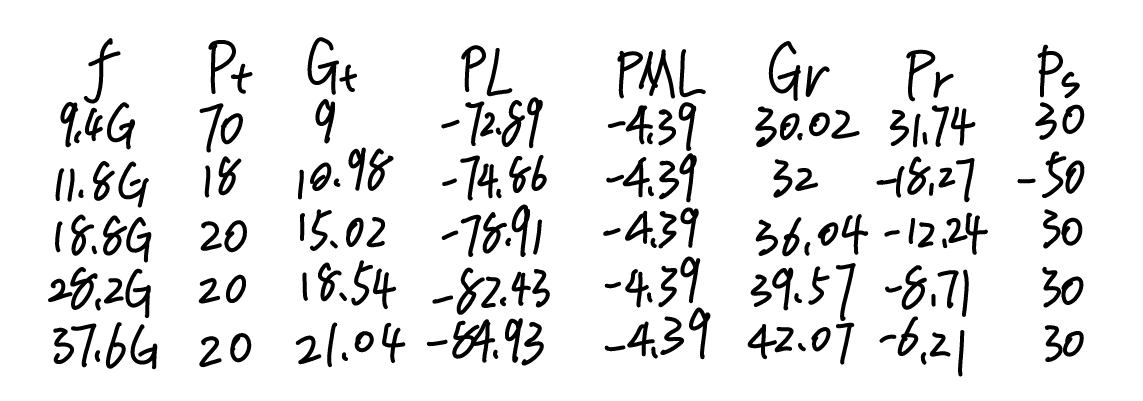 f Pt Gt PL PML Gr Pr Ps
9.4G 70 9 -72.89 -4.39 30.02 31.74 30
11.8G 18 10.98 -74.86 -4.39 32 -18.27 -50
18.8G 20 15.02 -78.91 -4.39 36.04 -12.24 30
28.2G 20 18.54 -82.43 -4.39 39.57 -8.71 30
37.6G 20 21.04 -84.93 -4.39 42.07 -6.21 30